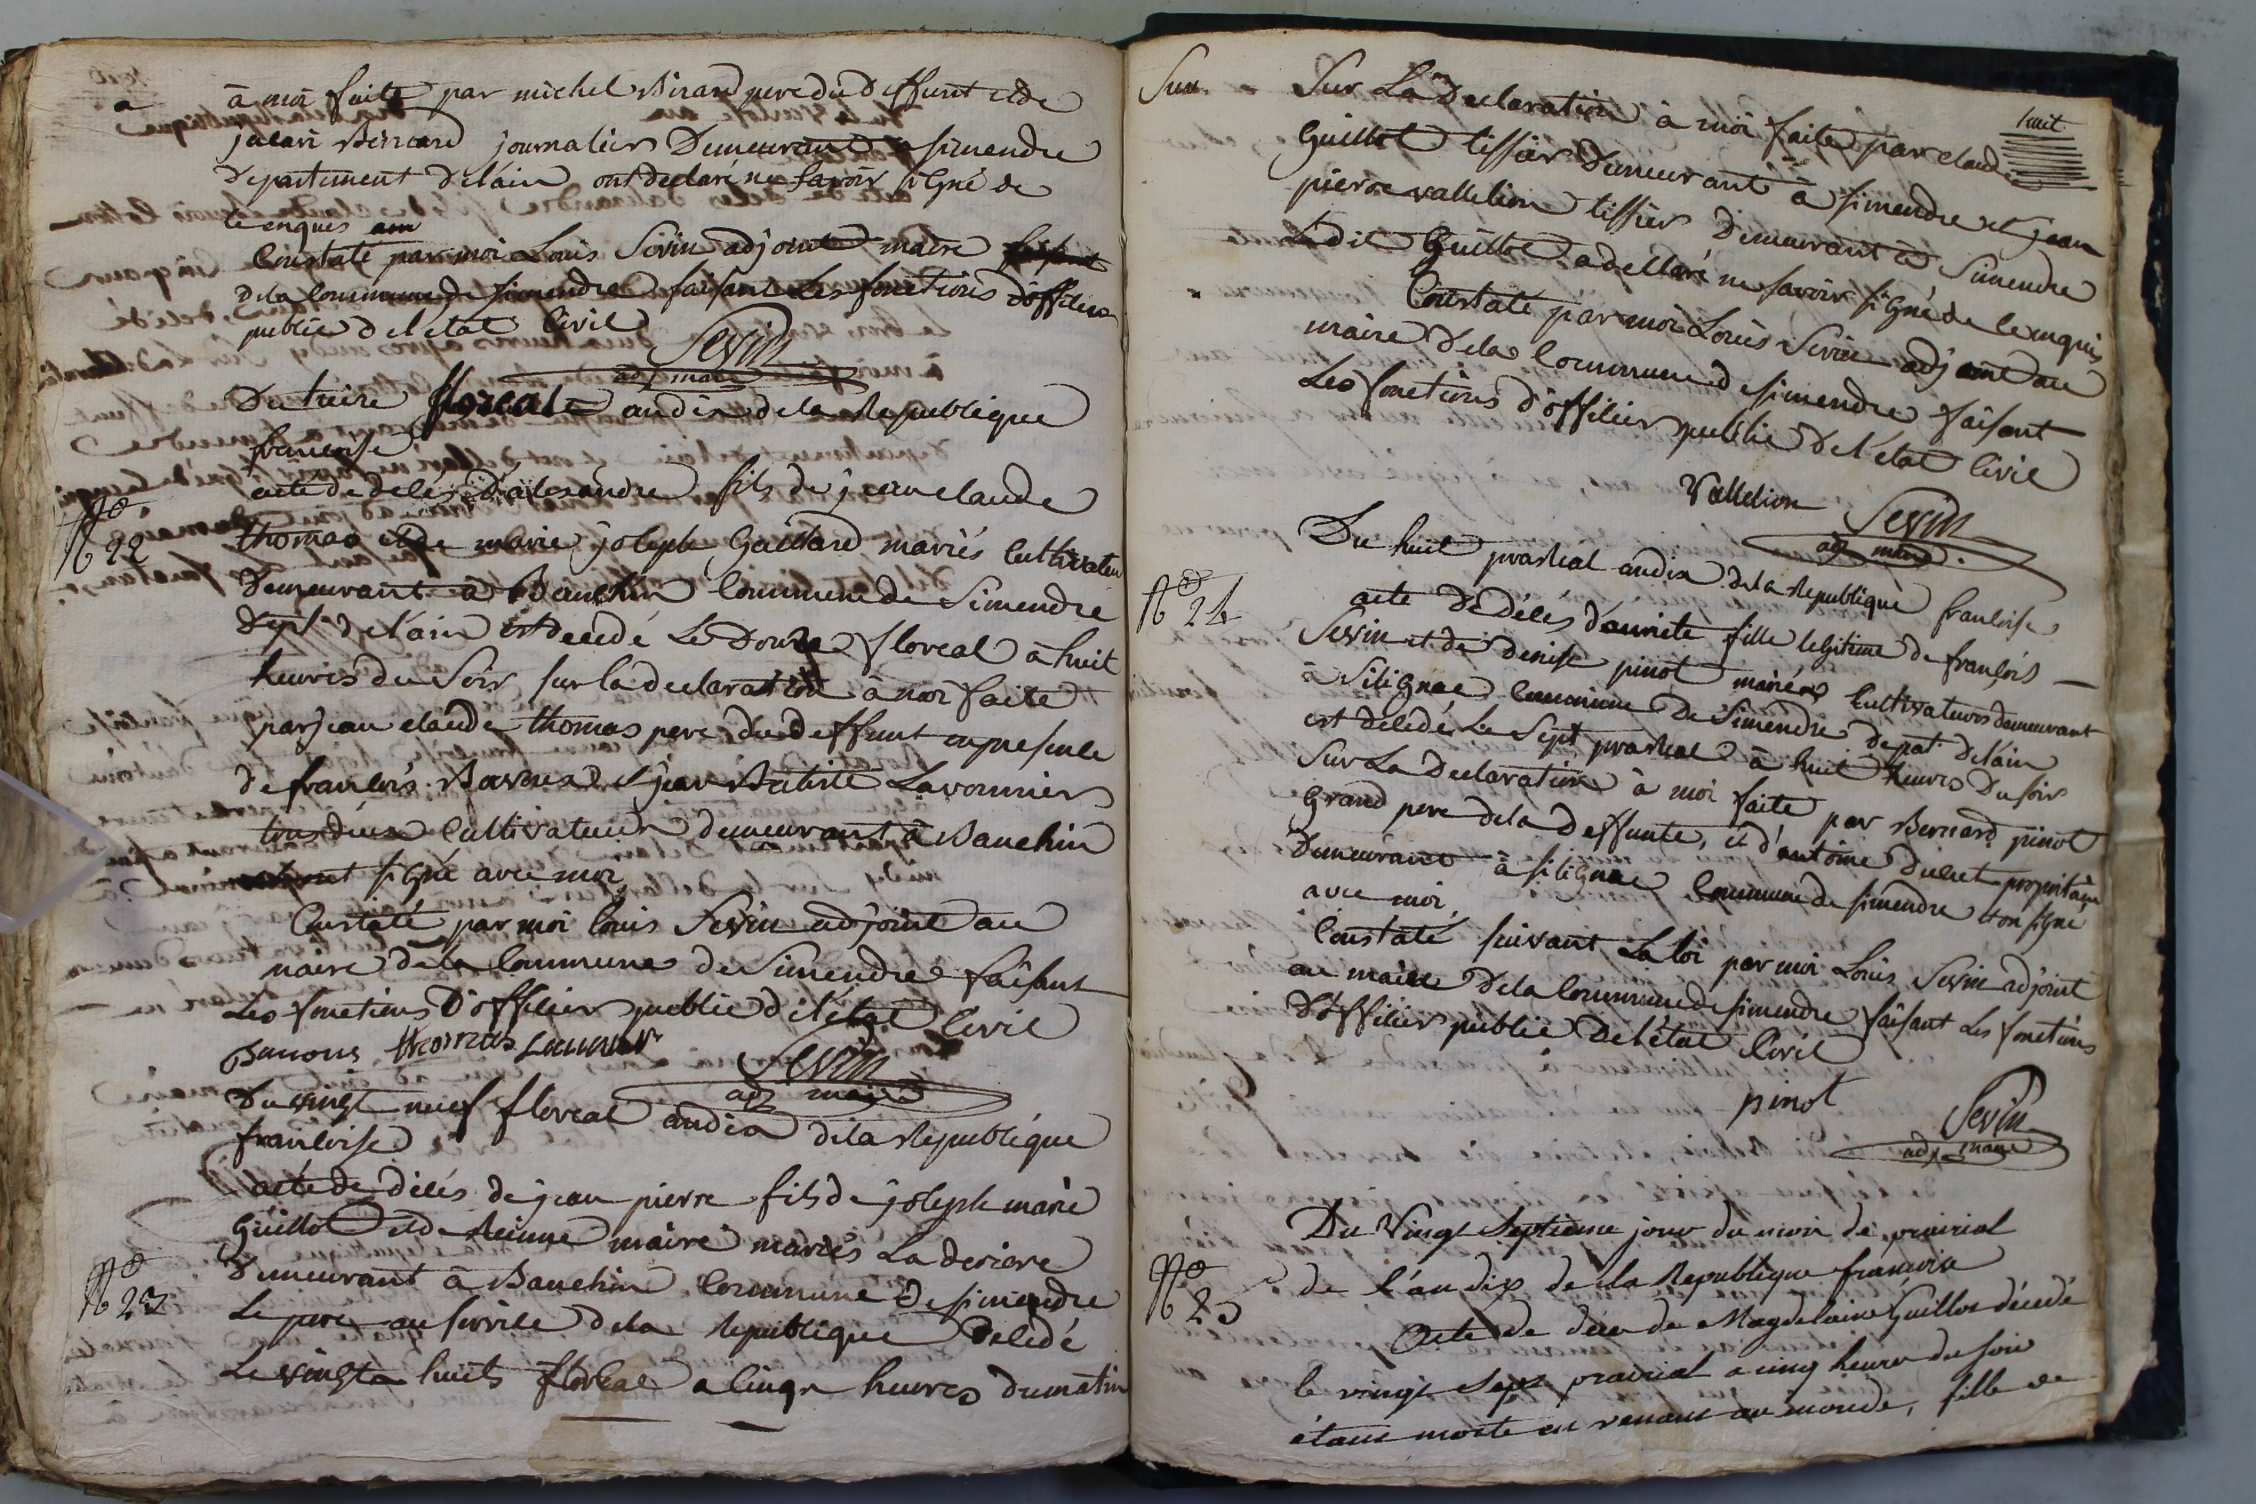 à moi faite par michel Birard pere du deffunt et de
Bernard journaliers Demeurant a simendre
Departement delain ont declaré ne savoir signé de
ce enquis
Constaté par moi Louis Sevin adjoint maire
dela Commune de simendre faisant Les fonctions d'offilier
public de letat Civil
Sevin
adj maire
Du treize floreal an dix dela Republique
francoise
N° 22
acte de delés d'alexandre fils de jean claude
thomas et de marie joseph Gaillard mariés Cultivateur
Demeurant à Bauchin Commune de Simendre
dept delain est decedé Le Douze floreal à huit
heures du Soir sur la declaration à moi faite
par jean claude thomas pere du deffunt en presence
de francois et jean Batiste Lavonnier
tous deux Cultivateur demeurant à Bauchin
signé avec moi
Constaté par moi louis Sevin adjoint au
maire de la Commune de Simendre faisant
Les fonctions D'offilier public de letat Civil
thomas
Sevin
adj maire
Du vingt neuf floreal an dix de la Republique
francloise
N° 23
acte de delés de jean pierre fils de joseph marie
Guillot et de Reinne maire mariés
Demeurant à Bauchin Commune de simendre
Le pere au service de la Republique delédé
Le vingt huit floreal a Cinqe heures du matin
huit
Sur La Declaration à moi faite par claude
Guillot tissier Demeurant à simendre et jean
pierre vallelion tissier Demeurant à Simendre
Ledit Guillot a dellaré ne savoir signé de ce enquis
Constaté par moi Louis Sevin adjoint au
maire de la Commune de simendre faisant
Les fonctions d'offilier public de l'etat Civil
Vallelion
Sevin
adj maire
Du huit prarial an dix de la Republique francloise
N° 24
acte de Délés d'auriete fille legitime de françois
Sevin et de Denise pinot mariés Cultivateurs demeurant
à Silignac Commune de Simendre depat delain
est delédé Le Sept prarial à huit heures Du soir
Sur La Declaration à moi faite par Bernard pinot
Grand pere de la Deffunte, et d'antoine Ducret propritaire
Demeurant à silignac Commune de simendre
avec moi
Constaté suivant La loi par moi Louis Sevin adjoint
au maire de la Commune de simendre faisant Les fonctions
D'offilier public de l'état Civil
pinot
Sevin
adj maire
Du Vingt Septieme jour du mois de prairial
N° 25
de l'an dix de la Republique
Acte de décé de Magdelaine Guillot décédé
le vingt Sept prairial a cinq heure du soir
étant morte en venant au monde, fille de